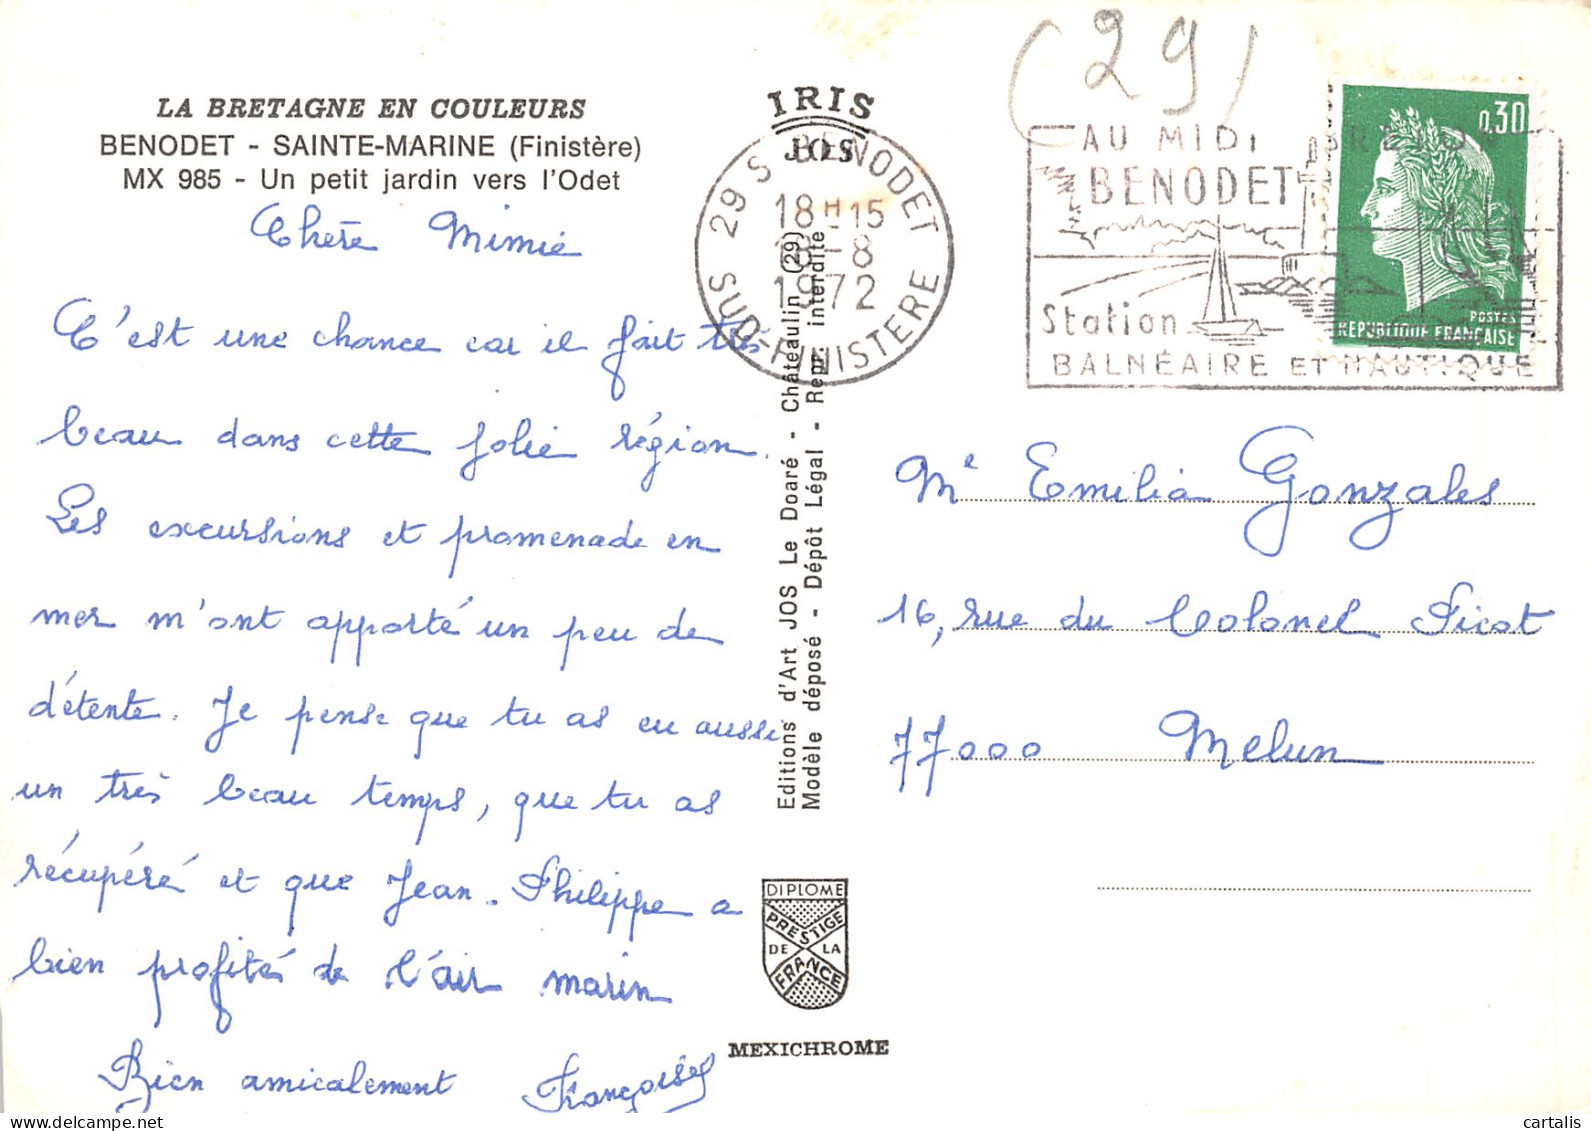 (29)
LA BRETAGNE EN COULEURS
BENODET - SAINTE-MARINE (Finistère)
MX 985 - Un petit jardin vers l'Odet
Chère Mimie
C'est une chance car il fait très
beau dans cette jolie région.
Les excursions et promenade en
mer m'ont apporté un peu de
détente. Je pense que tu as eu aussi
un très beau temps, que tu as
récupéré et que Jean-Philippe a
bien profité de l'air marin
Bien amicalement Françoise
IRIS
JOS
29 S BENODET
18H15
8-8
1972
SUD-FINISTERE
Editions d'Art JOS Le Doaré - Châteaulin (29)
Modèle déposé - Dépôt Légal - Repr. interdite
DIPLOME
PRESTIGE
DE LA
FRANCE
MEXICHROME
AU MIDI BRETON
BENODET
Station
BALNÉAIRE ET NAUTIQUE
0,30
POSTES
REPUBLIQUE FRANÇAISE
Me Emilia Gonzales
16, rue du Colonel Picot
77000 Melun
delcampe.net
cartalis